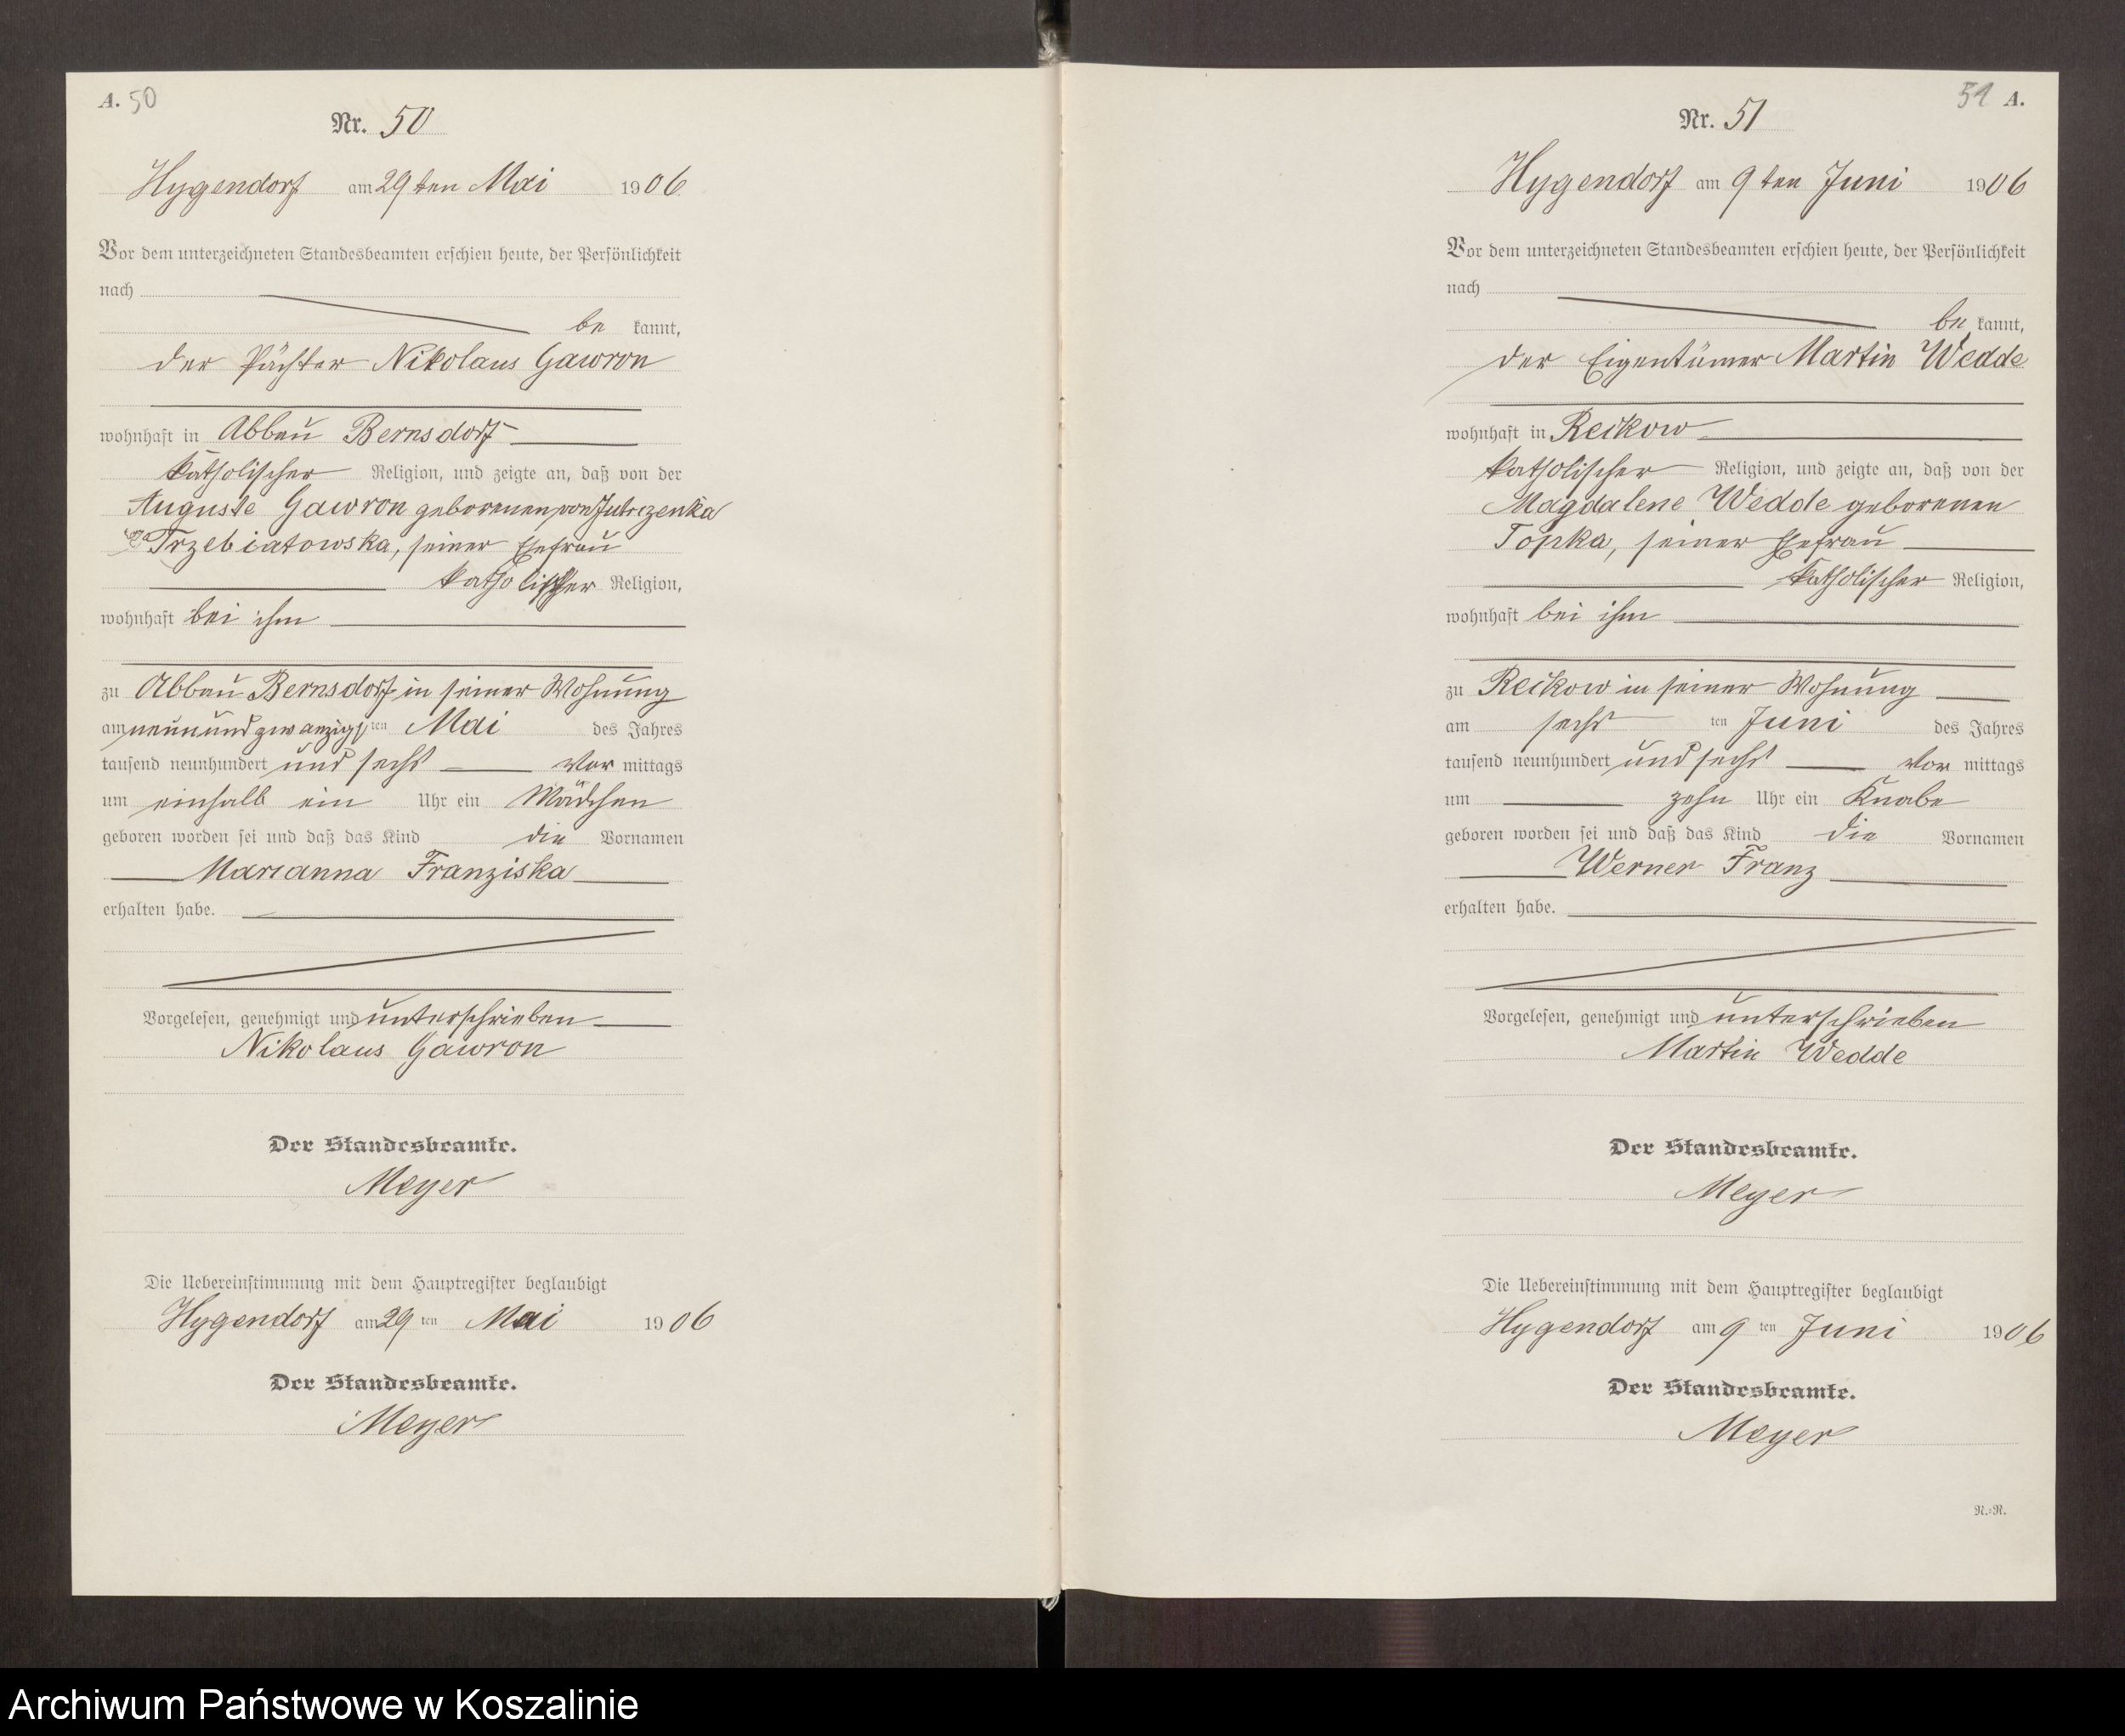 A. 50
Nr. 50
Hygendorf am 29ten Mai 1906.
Vor dem unterzeichneten Standesbeamten erschien heute, der Persönlichkeit
nach
be kannt,
der Pächter Nikolaus Gawron
wohnhaft in Abbau Bernsdorf
katholischer Religion, und zeigte an, daß von der
Auguste Gawron geborenen von Jutrczenka
Trzebiatowska, seiner Ehefrau
katholischer Religion,
wohnhaft bei ihm
zu Abbau Bernsdorf in seiner Wohnung
am neunundzwanzigsten Mai des Jahres
tausend neunhundert und sechs Vor mittags
um einhalb ein Uhr ein Mädchen
geboren worden sei und daß das Kind die Vornamen
Marianna Franziska
erhalten habe.
Vorgelesen, genehmigt und unterschrieben
Nikolaus Gawron
Der Standesbeamte.
Meyer
Die Uebereinstimmung mit dem Hauptregister beglaubigt
Hygendorf am 29 ten Mai 1906
Der Standesbeamte.
Meyer
51 A.
Nr. 51
Hygendorf am 9ten Juni 1906
Vor dem unterzeichneten Standesbeamten erschien heute, der Persönlichkeit
nach
be kannt,
der Eigentümer Martin Wedde
wohnhaft in Reckow
katholischer Religion, und zeigte an, daß von der
Magdalene Wedde geborenen
Topka, seiner Ehefrau
katholischer Religion,
wohnhaft bei ihm
zu Reckow in seiner Wohnung
am sechs ten Juni des Jahres
tausend neunhundert und sechs Vor mittags
um zehn Uhr ein Knabe
geboren worden sei und daß das Kind die Vornamen
Werner Franz
erhalten habe.
Vorgelesen, genehmigt und unterschrieben
Martin Wedde
Der Standesbeamte.
Meyer
Die Uebereinstimmung mit dem Hauptregister beglaubigt
Hygendorf am 9 ten Juni 1906
Der Standesbeamte.
Meyer
N.=N.
Archiwum Państwowe w Koszalinie